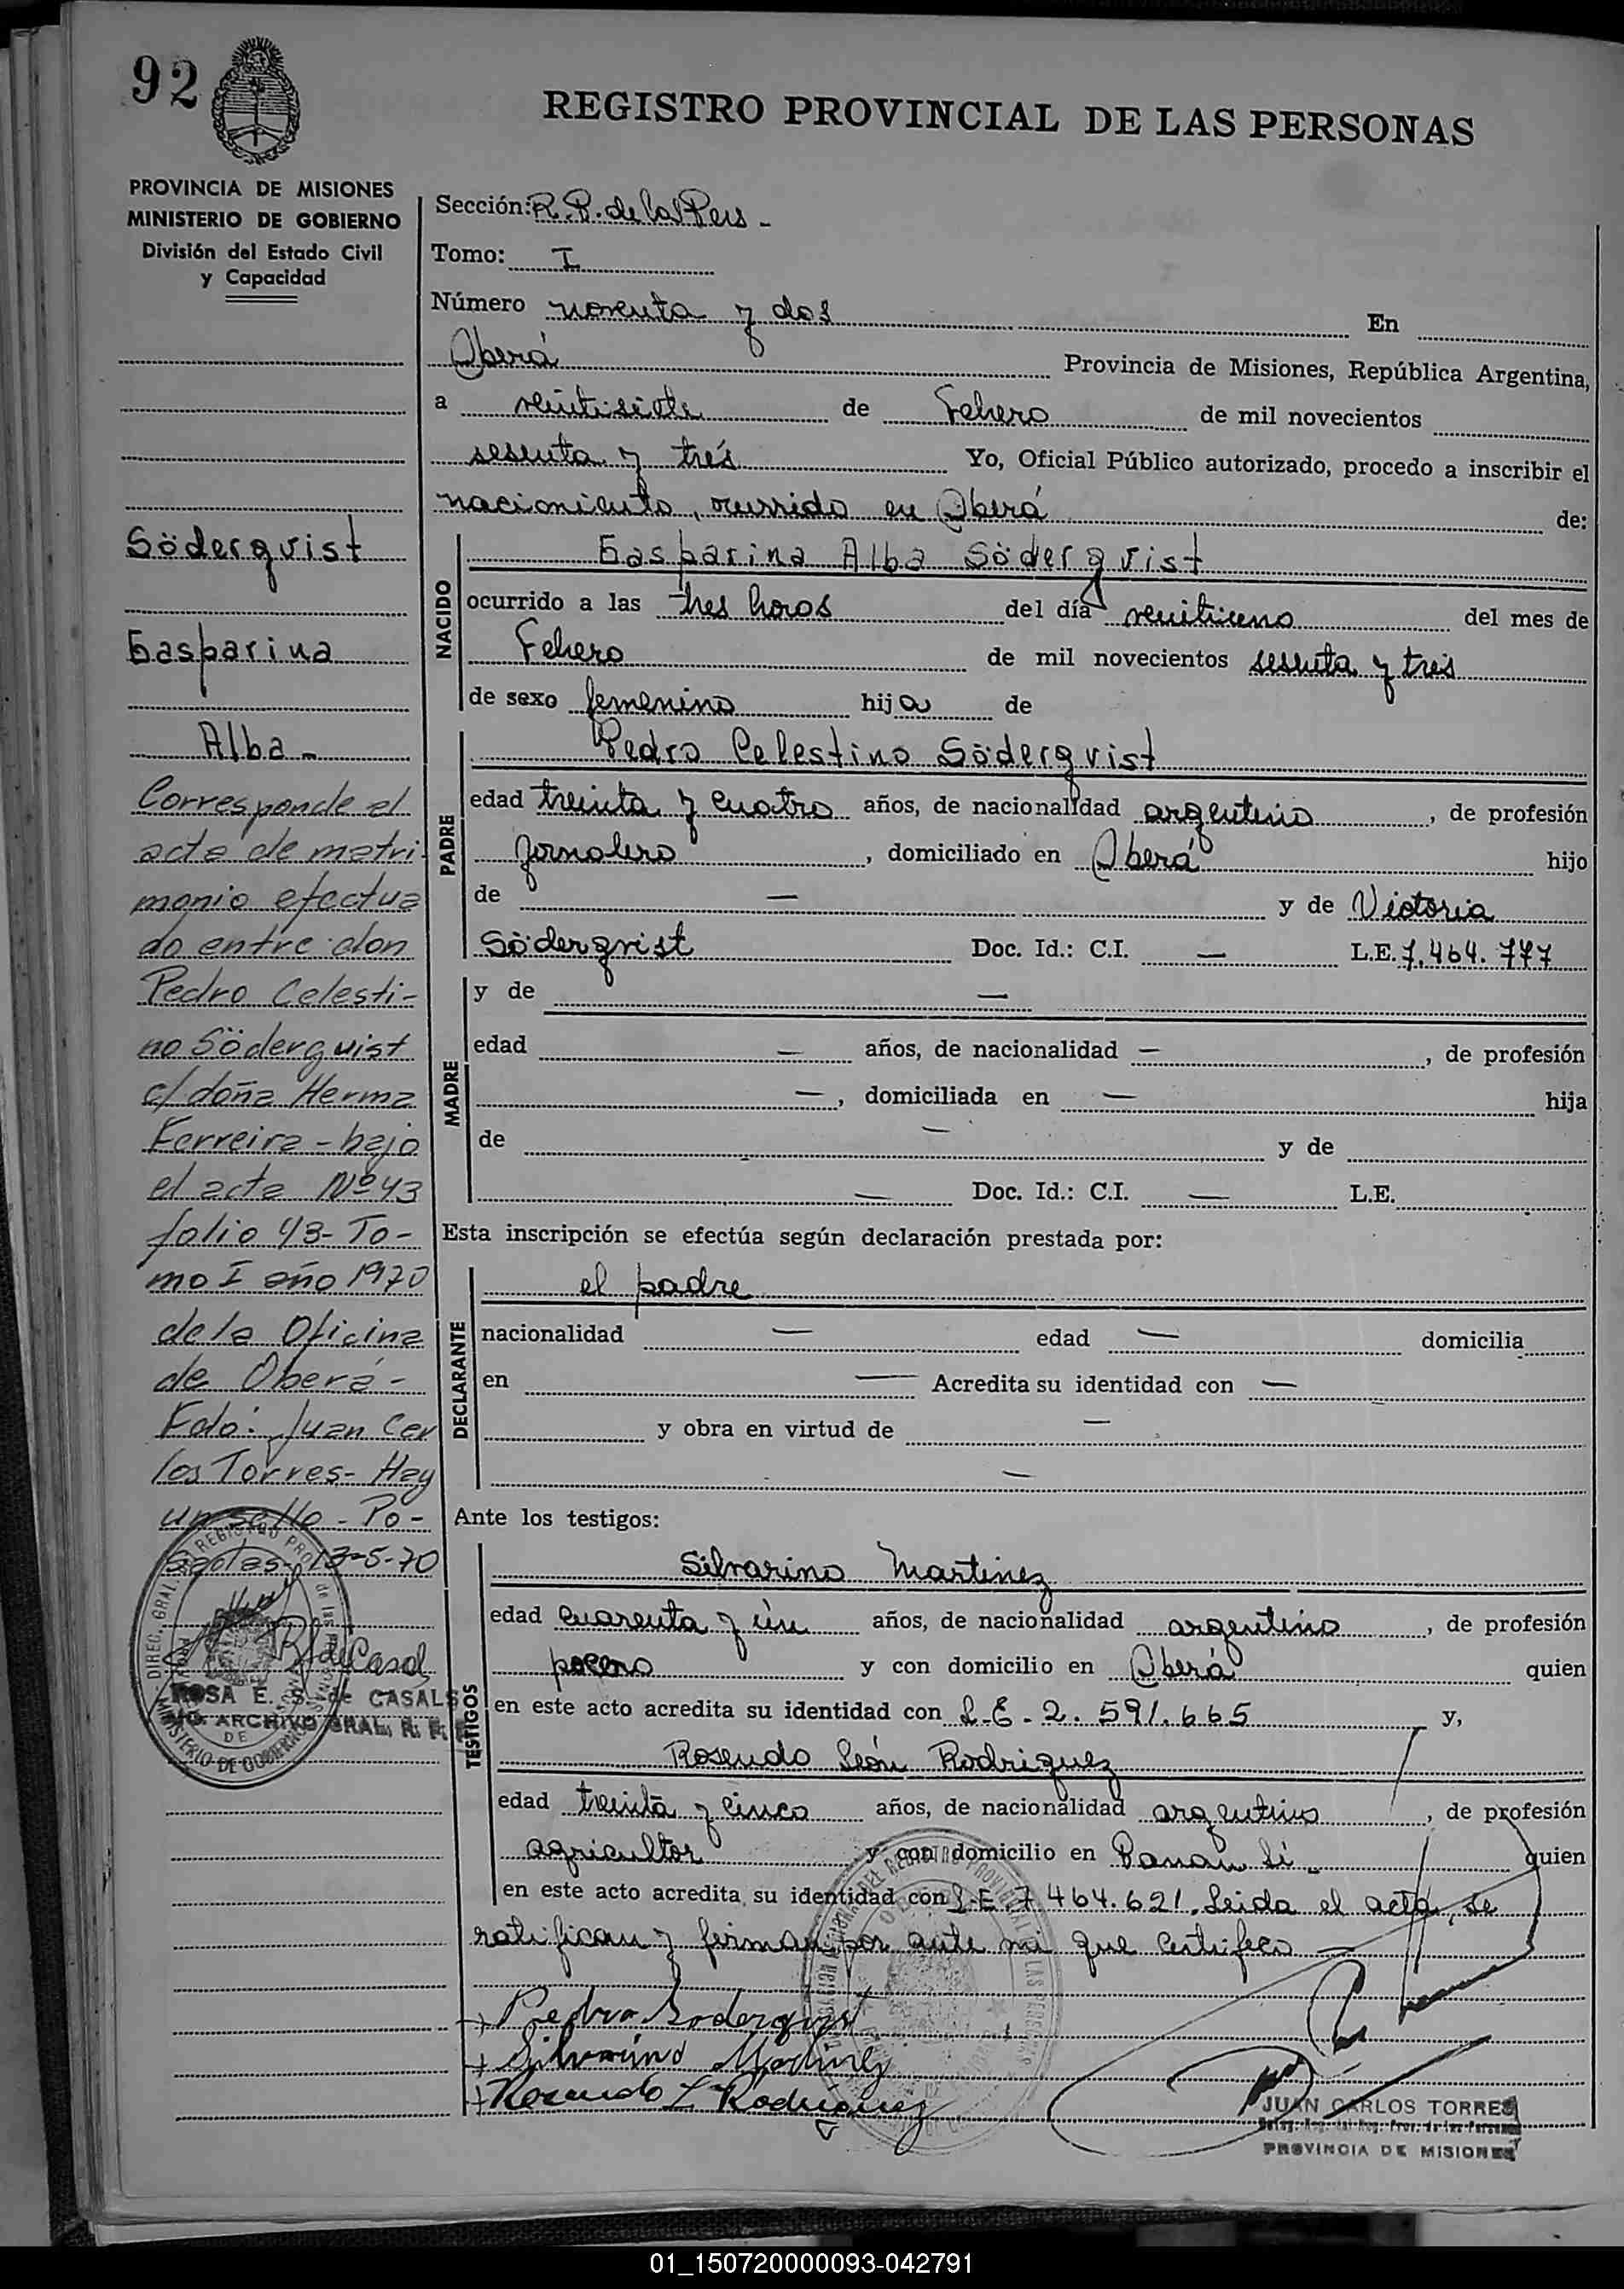 92
REGISTRO PROVINCIAL DE LAS PERSONAS
PROVINCIA DE MISIONES
MINISTERIO DE GOBIERNO
División del Estado Civil
y Capacidad
Söderqvist
Gasparina
Alba -
Corresponde el
acta de matri
monio efectua
do entre don
Pedro Celesti-
no Söderquist
c/ doña Herma
Ferreira - bajo
el acta Nº 43
folio 43 - To-
mo I año 1970
de la Oficina
de Oberá -
Fdo: Juan Car
los Torres - Hay
un sello - Po-
sadas - 13-5-70
ROSA E. S. de CASALS
ARCHIVO GRAL. R. P.
Sección: R. P. de las Pers -
Tomo: I
Número noventa y dos En
Oberá Provincia de Misiones, República Argentina,
a veintisiete de Febrero de mil novecientos
sesenta y trés Yo, Oficial Público autorizado, procedo a inscribir el
nacimiento, ocurrido en Oberá de:
NACIDO
Gasparina Alba Söderqvist
ocurrido a las tres horas del día veintiuno del mes de
Febrero de mil novecientos sesenta y trés
de sexo femenino hija de
PADRE
Pedro Celestino Söderqvist
edad treinta y cuatro años, de nacionalidad argentino, de profesión
jornalero, domiciliado en Oberá hijo
de — y de Victoria
Söderqvist Doc. Id.: C.I. — L.E. 7.464.777
MADRE
y de —
edad — años, de nacionalidad —, de profesión
—, domiciliada en — hija
de — y de
— Doc. Id.: C.I. — L.E.
Esta inscripción se efectúa según declaración prestada por:
DECLARANTE
el padre
nacionalidad — edad — domicilia
en — Acredita su identidad con —
y obra en virtud de —
—
Ante los testigos:
TESTIGOS
Silvarino Martinez
edad cuarenta y ún años, de nacionalidad argentino, de profesión
pocero y con domicilio en Oberá quien
en este acto acredita su identidad con L.E. 2.591.665 y,
Rosendo León Rodriguez
edad treinta y cinco años, de nacionalidad argentino, de profesión
agricultor y con domicilio en Panambí - quien
en este acto acredita su identidad con L.E. 7.464.621. Leida el acta, se
ratifican y firman por ante mi que certifico —
Pedro Soderqvist
Silvarino Martinez
Rosendo L Rodriguez
JUAN CARLOS TORRES
PROVINCIA DE MISIONES
01_150720000093-042791